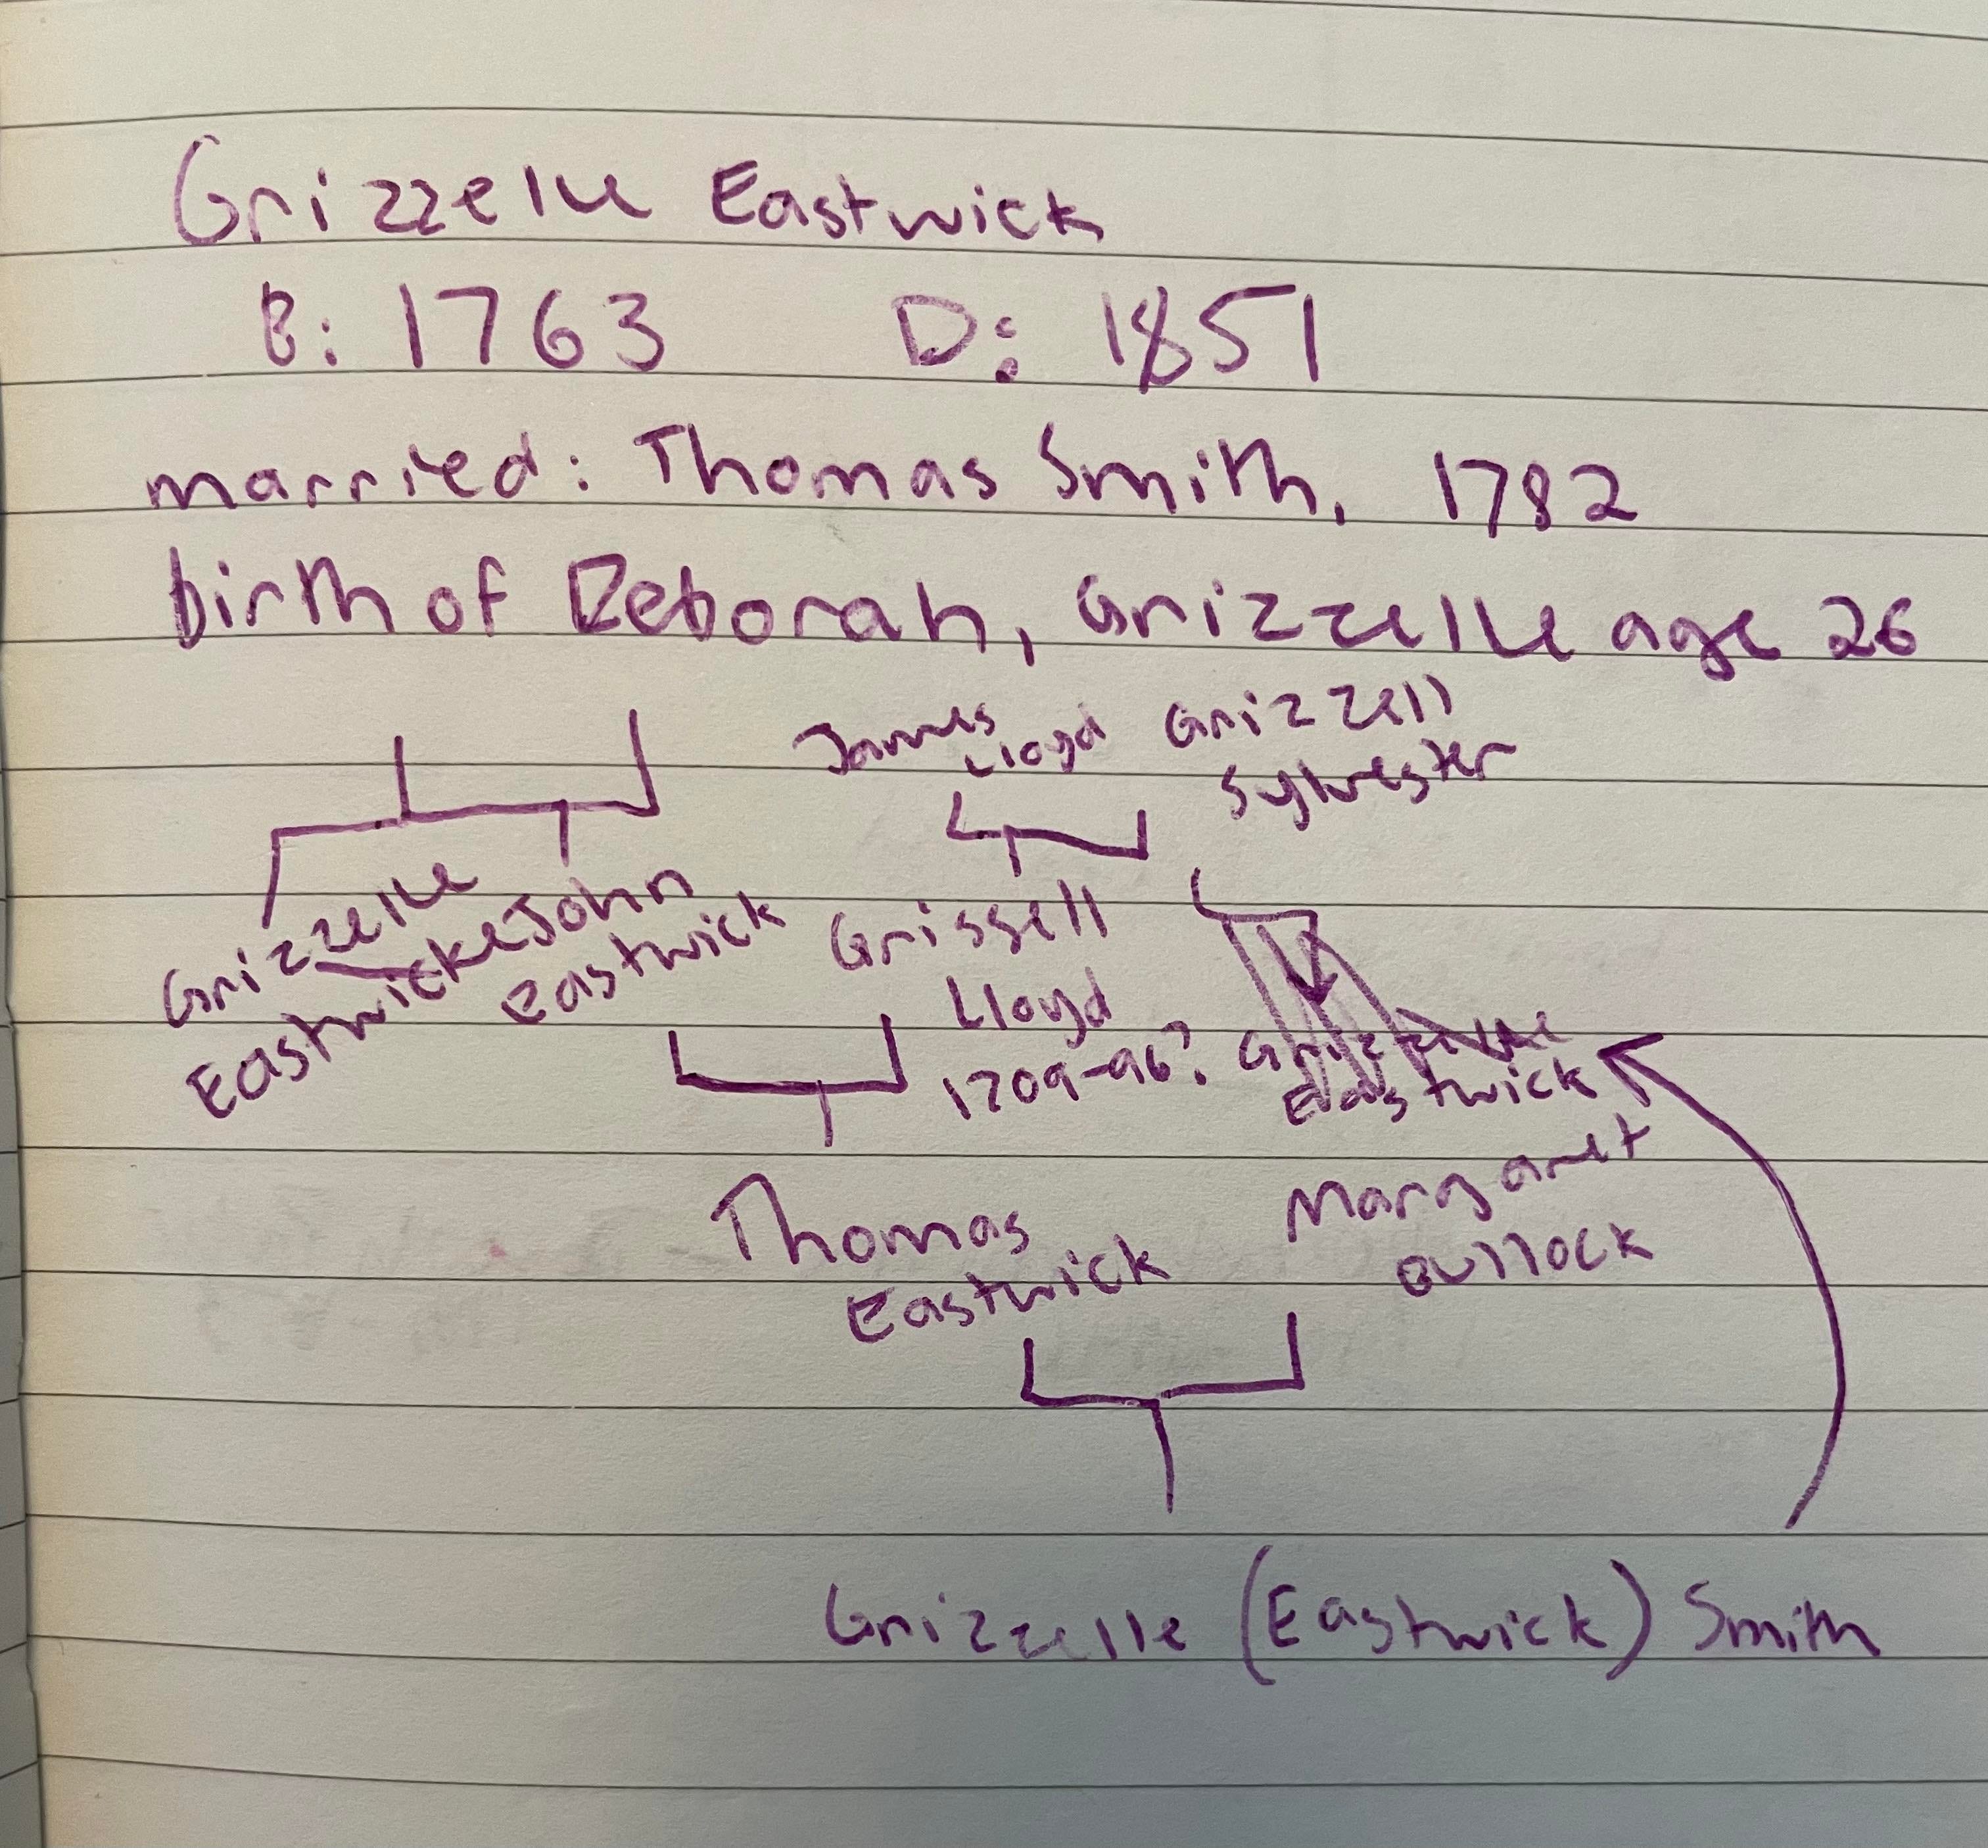 Grizzelle Eastwick
B: 1763 D: 1851
married: Thomas Smith, 1782
birth of Deborah, Grizzelle age 26
James Lloyd
Grizzell Sylvester
Grizzelle Eastwicke
John Eastwick
Grissell Lloyd
1709-96?
Grizzelle Eastwick
Thomas Eastwick
Margaret Bullock
Grizzelle (Eastwick) Smith